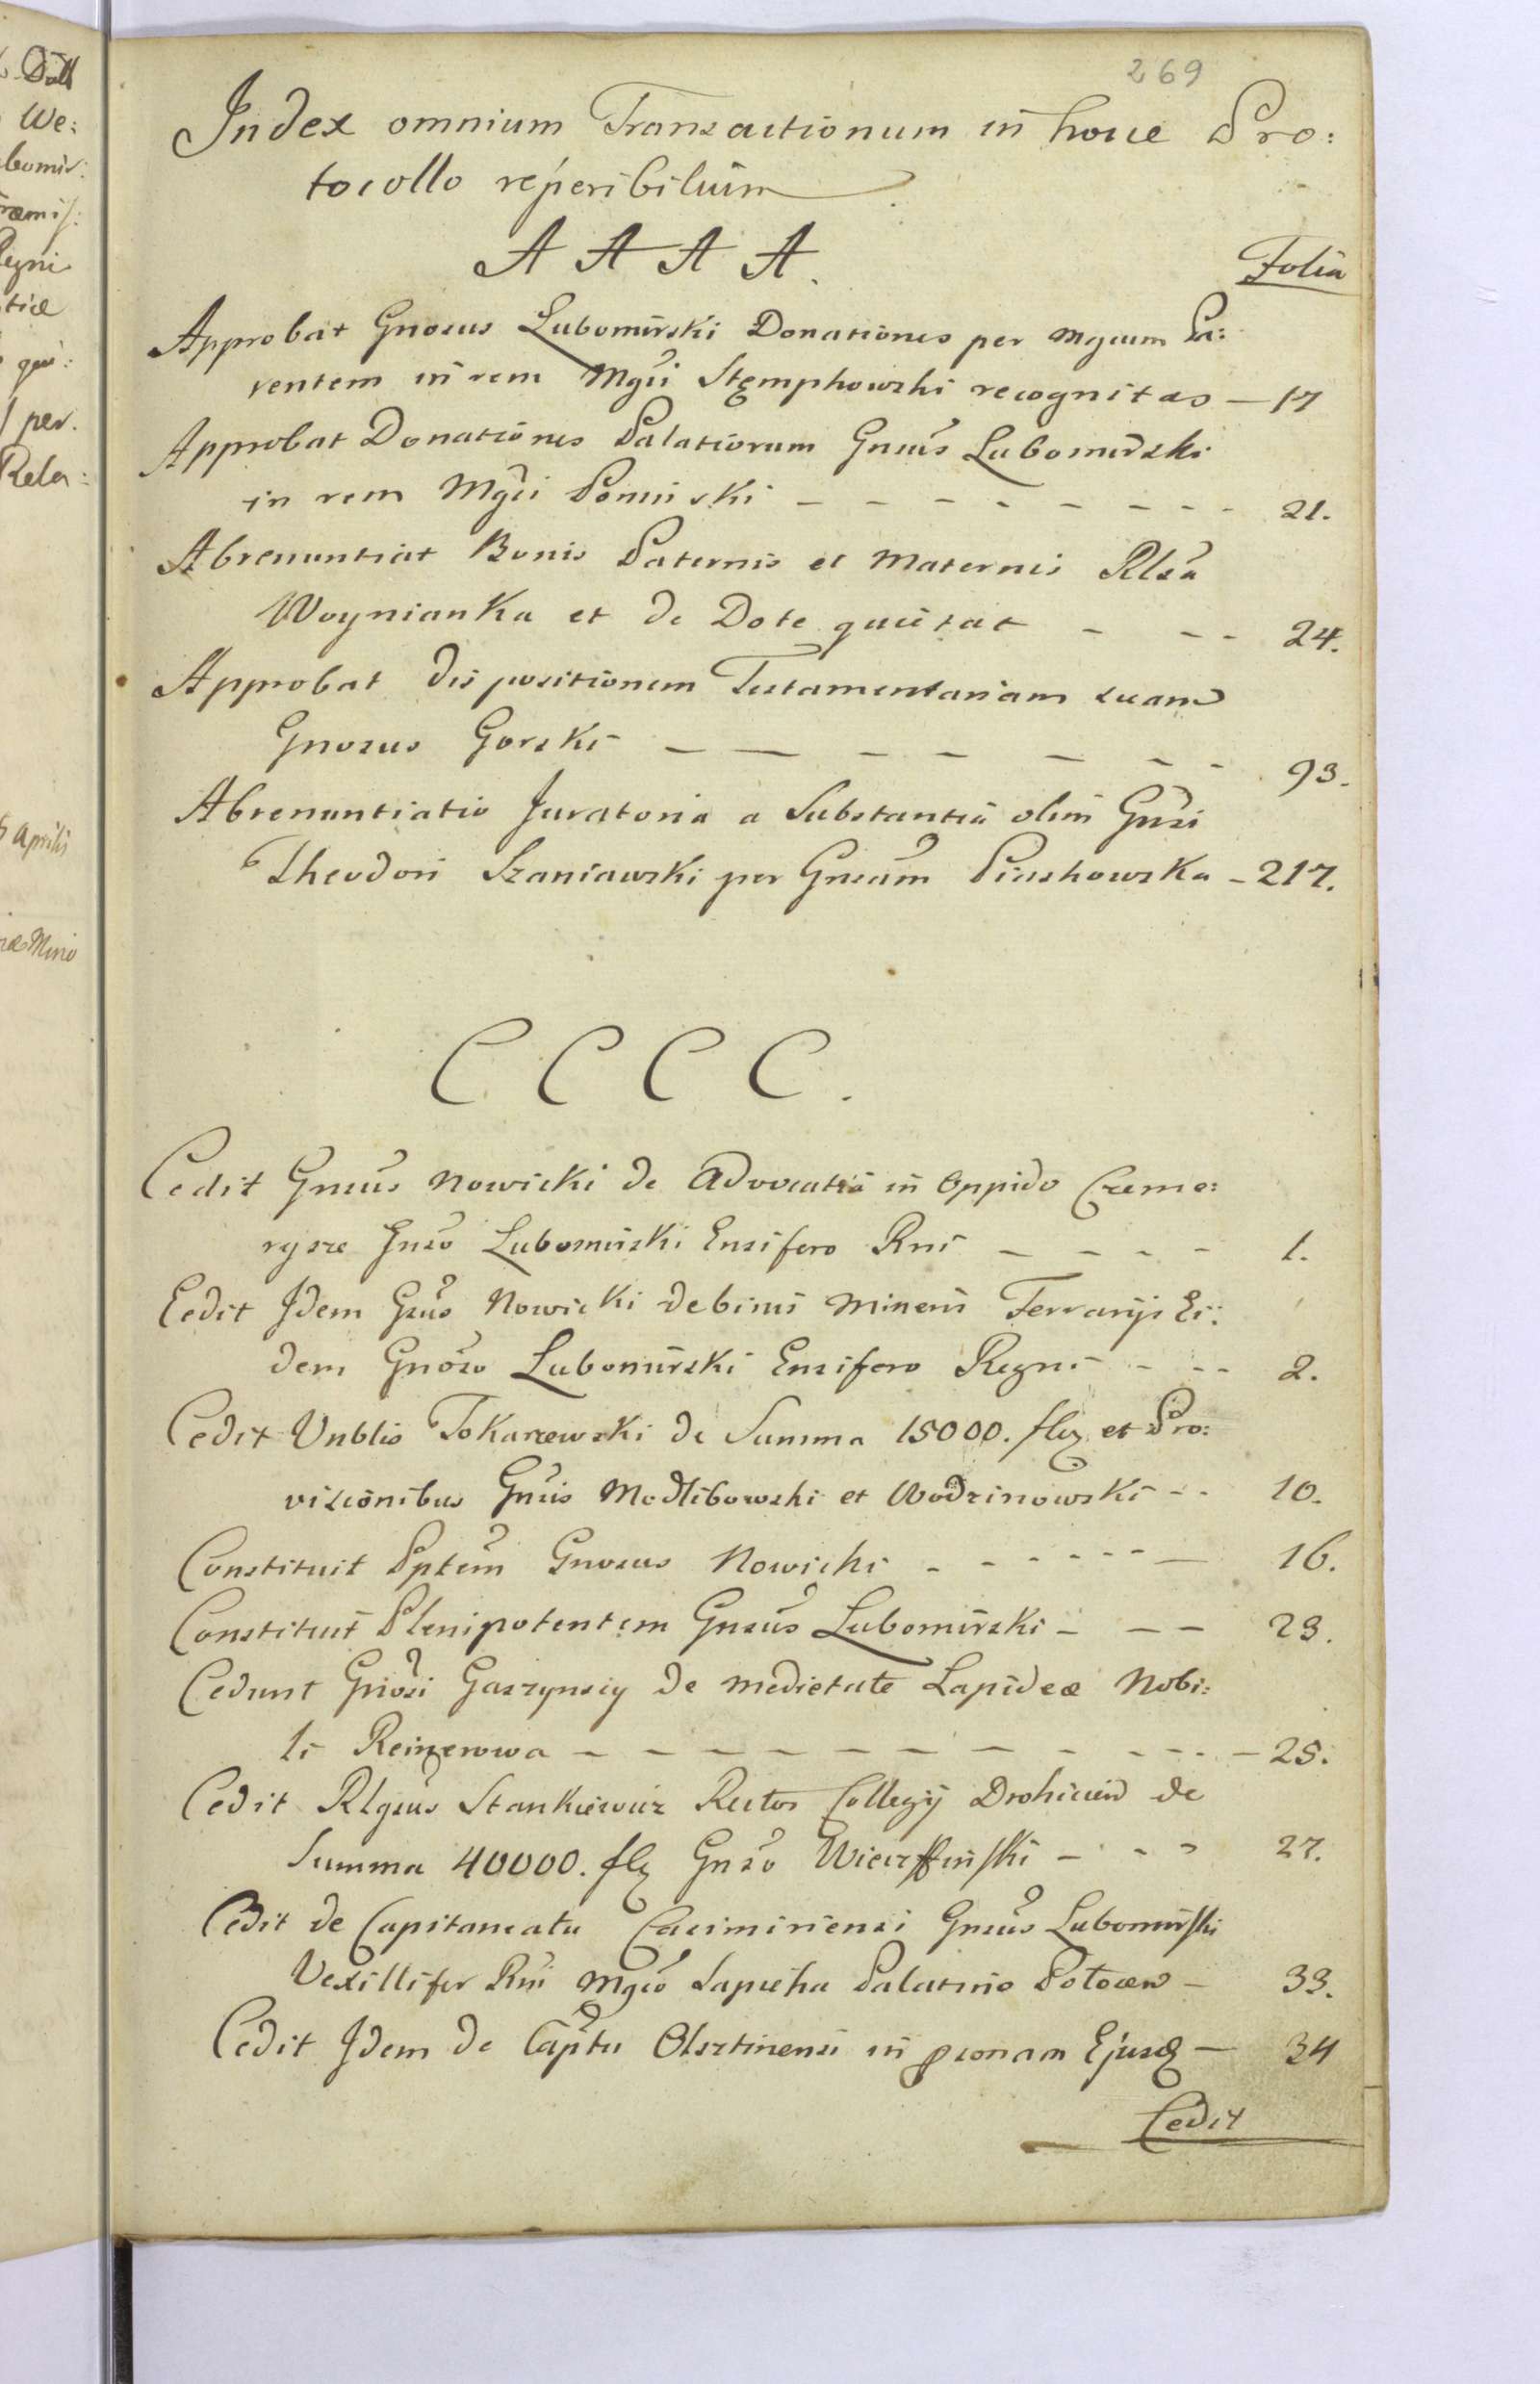 269
Index omnium Transactionum in hocce Pro:
tocollo reperibilium
A A A A.
Folia
Approbat Gnosus Lubomirski Donationes per Mgcum Pa:
rentem in rem Mgci Stęmpkowski recognitas — 17
Approbat Donationes Palatiorum Gnsus Lubomirski
in rem Mgci Poninski - - - - - - - - 21.
Abrenuntiat Bonis Paternis et Maternis Rlsa
Woynianka et de Dote quietat - - - 24.
Approbat dispositionem Testamentariam suam
Gnosus Gorski - - - - - - - 93.
Abrenuntiatio Juratoria a Substantia olim Gnsi
Theodori Szaniawski per Gnsam Piaskowska - 217.
C C C C.
Cedit Gnsus Nowicki de Advocatia in Oppido Czeme:
rysze Gnso Lubomirski Ensifero Rni - - - - 1.
Cedit Idem Gsus Nowicki de binis Mineris Ferrarijs Ei:
dem Gnoso Lubomirski Ensifero Regni - - - 2.
Cedit Vnblis Tokarzewski de Summa 15000. flq et Pro:
visionibus Gnsis Modlibowski et Wodzinowski - - 10.
Constituit Pptem Gnosus Nowicki - - - - - - - 16.
Constituit Plenipotentem Gnsus Lubomirski - - - 23.
Cedunt Gnosi Gaszynscy de medietate Lapideæ Nobi:
li Reinerowa - - - - - - - - - - - - 25.
Cedit Rlgsus Stankiewicz Rector Collegij Drohicien de
Summa 40000. flq Gnso Wierzfiński - - - 27.
Cedit de Capitaneatu Casimiriensi Gnsus Lubomirski
Vexillifer Rni Mgco Sapieha Palatino Polocen - 33.
Cedit Idem de Captu Olsztinensi in psonam Ejusq — 34
Cedit